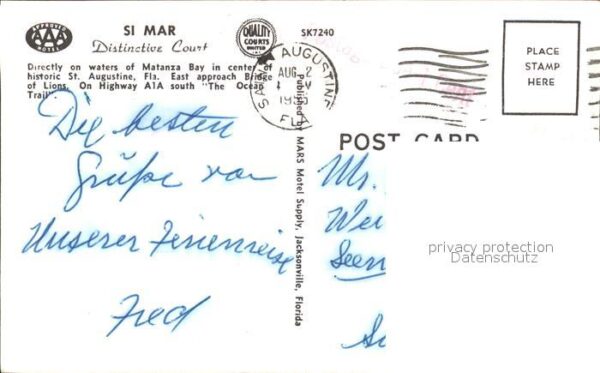 APPROVED
AAA
MOTEL
SI MAR
Distinctive Court
Directly on waters of Matanza Bay in center of
historic St. Augustine, Fla. East approach Bridge
of Lions. On Highway A1A south "The Ocean
Trail".
QUALITY
COURTS
UNITED
SK7240
AUGUSTINE
AUG 2
FLA
PLACE
STAMP
HERE
POST CARD
Published by MARS Motel Supply, Jacksonville, Florida
Die besten
Grüße von
Unserer Ferienreise
Fred
Mr.
Wei
Seen
privacy protection
Datenschutz